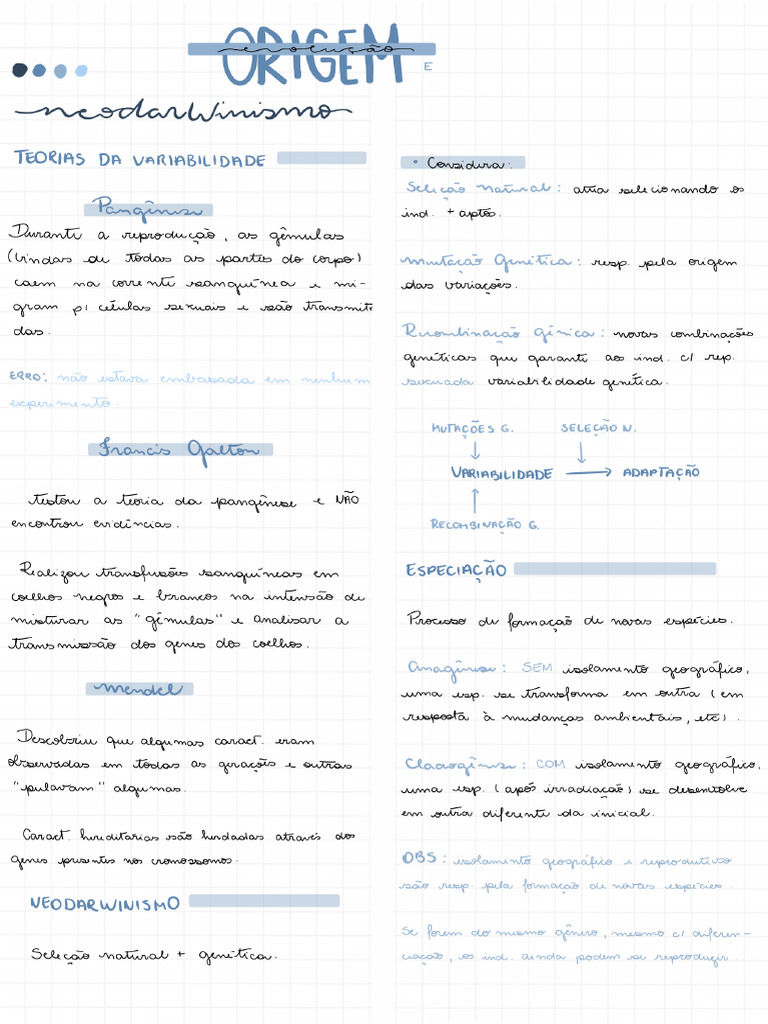 ORIGEM
evolução
E
neodarwinismo
TEORIAS DA VARIABILIDADE
Pangênese
Durante a reprodução, as gêmulas
(vindas de todas as partes do corpo)
caem na corrente sanguínea e mi-
gram p/ células sexuais e são transmiti
das.
ERRO: não estava embasada em nenhum
experimento.
Francis Galton
testou a teoria da pangênese e NÃO
encontrou evidências.
Realizou transfusões sanguíneas em
coelhos negros e brancos na intensão de
misturar as "gêmulas" e analisar a
transmissão dos genes dos coelhos.
Mendel
Descobriu que algumas caract. eram
observadas em todas as gerações e outras
"pulavam" algumas.
Caract. hereditárias são herdadas através dos
genes presentes nos cromossomos.
NEODARWINISMO
Seleção natural + genética.
• Considera:
Seleção Natural: atua selecionando os
ind. + aptos.
Mutação Genética: resp. pela origem
das variações.
Recombinação Gênica: novas combinações
genéticas que garante aos ind. c/ rep.
sexuada variabilidade genética.
MUTAÇÕES G. SELEÇÃO N.
VARIABILIDADE → ADAPTAÇÃO
RECOMBINAÇÃO G.
ESPECIAÇÃO
Processo de formação de novas espécies.
Anagênese: SEM isolamento geográfico,
uma esp. se transforma em outra (em
resposta à mudanças ambientais, etc).
Cladogênese: COM isolamento geográfico,
uma esp. (após irradiação) se desenvolve
em outra diferente da inicial.
OBS: isolamento geográfico e reprodutivo
são resp. pela formação de novas espécies.
Se forem do mesmo gênero, mesmo c/ diferen-
ciação, os ind. ainda podem se reproduzir.